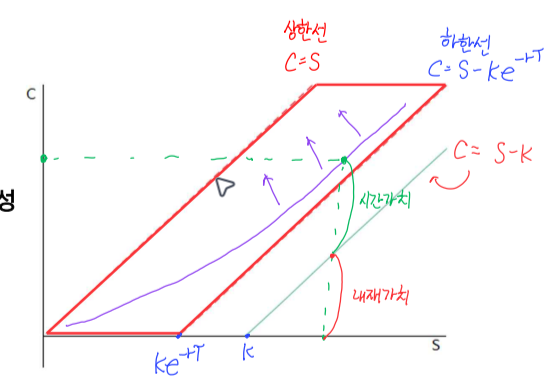 상한선
C=S
하한선
C=S-Ke^-rT
C
C= S-K
성
시간가치
내재가치
Ke^-rT
K
S